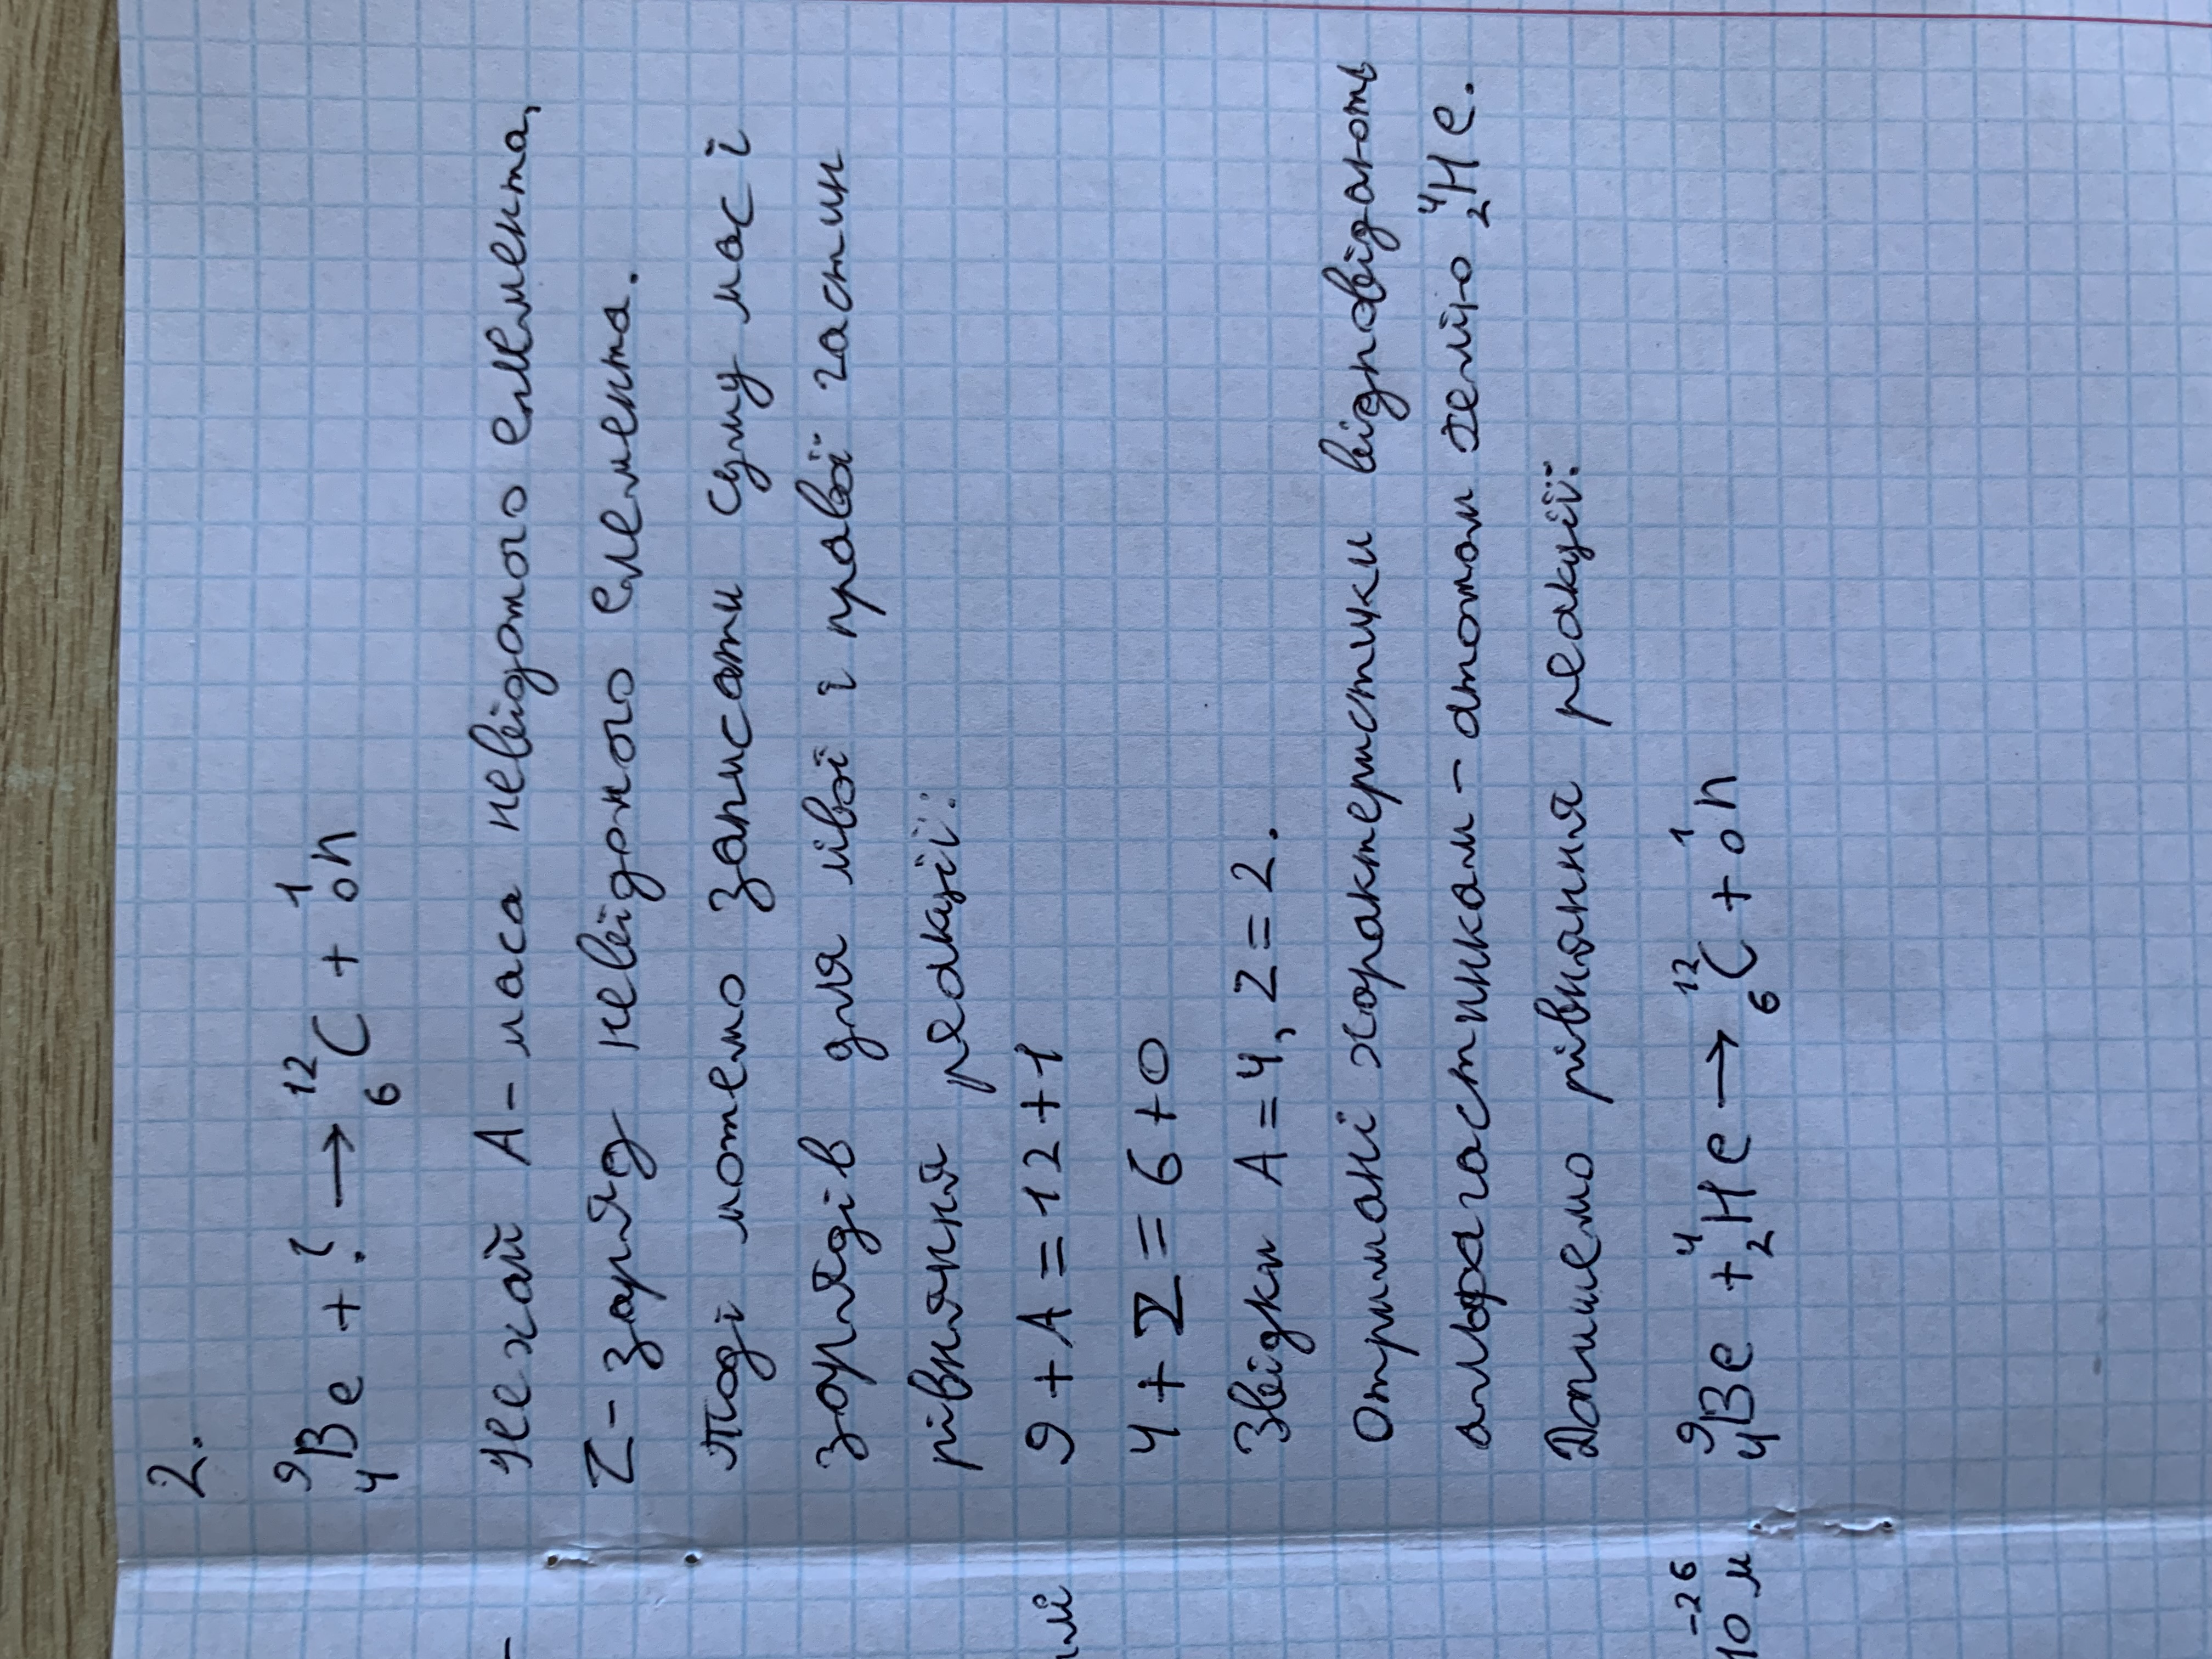 2.
⁹₄Be + ? → ¹²₆C + ¹₀n
Нехай A - маса невідомого елемента,
Z - заряд невідомого елемента.
Тоді можемо записати суму мас і
зарядів для лівої і правої частин
рівняння реакції:
9 + A = 12 + 1
4 + Z = 6 + 0
Звідки A = 4, Z = 2.
Отримані характеристики відповідають
альфа частинкам - атомам гелію ⁴₂He.
Допишемо рівняння реакції:
⁹₄Be + ⁴₂He → ¹²₆C + ¹₀n
10⁻²⁶ м